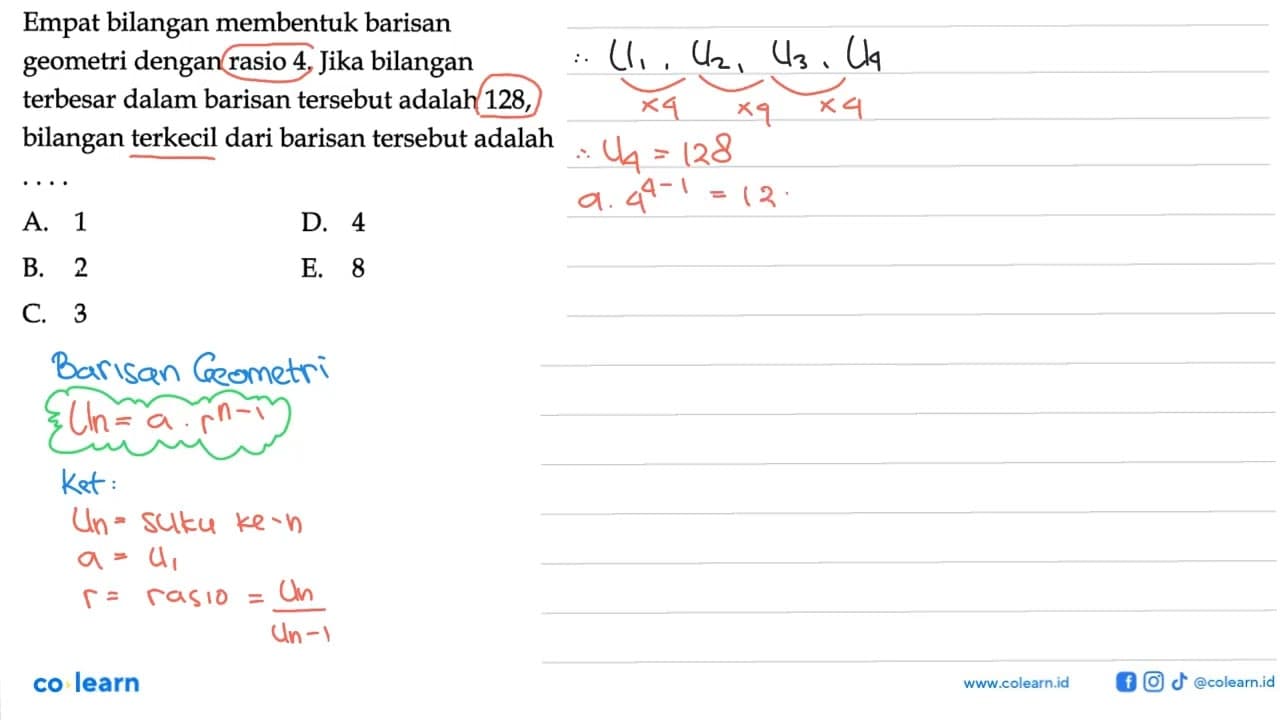 Empat bilangan membentuk barisan
geometri dengan rasio 4. Jika bilangan
terbesar dalam barisan tersebut adalah 128,
bilangan terkecil dari barisan tersebut adalah
....
A. 1
B. 2
C. 3
D. 4
E. 8
Barisan Geometri
Un = a . r^n-1
Ket:
Un = suku ke-n
a = U1
r = rasio = Un
Un-1
∴ U1, U2, U3, U4
×4 ×4 ×4
∴ U4 = 128
a. 4^4-1 = 12
co learn
www.colearn.id
@colearn.id